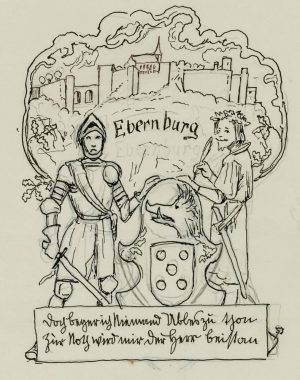 Ebernburg
Doch beger ich Niemand Ubles zu thon
Zur Noth wird mir der Herr beistan